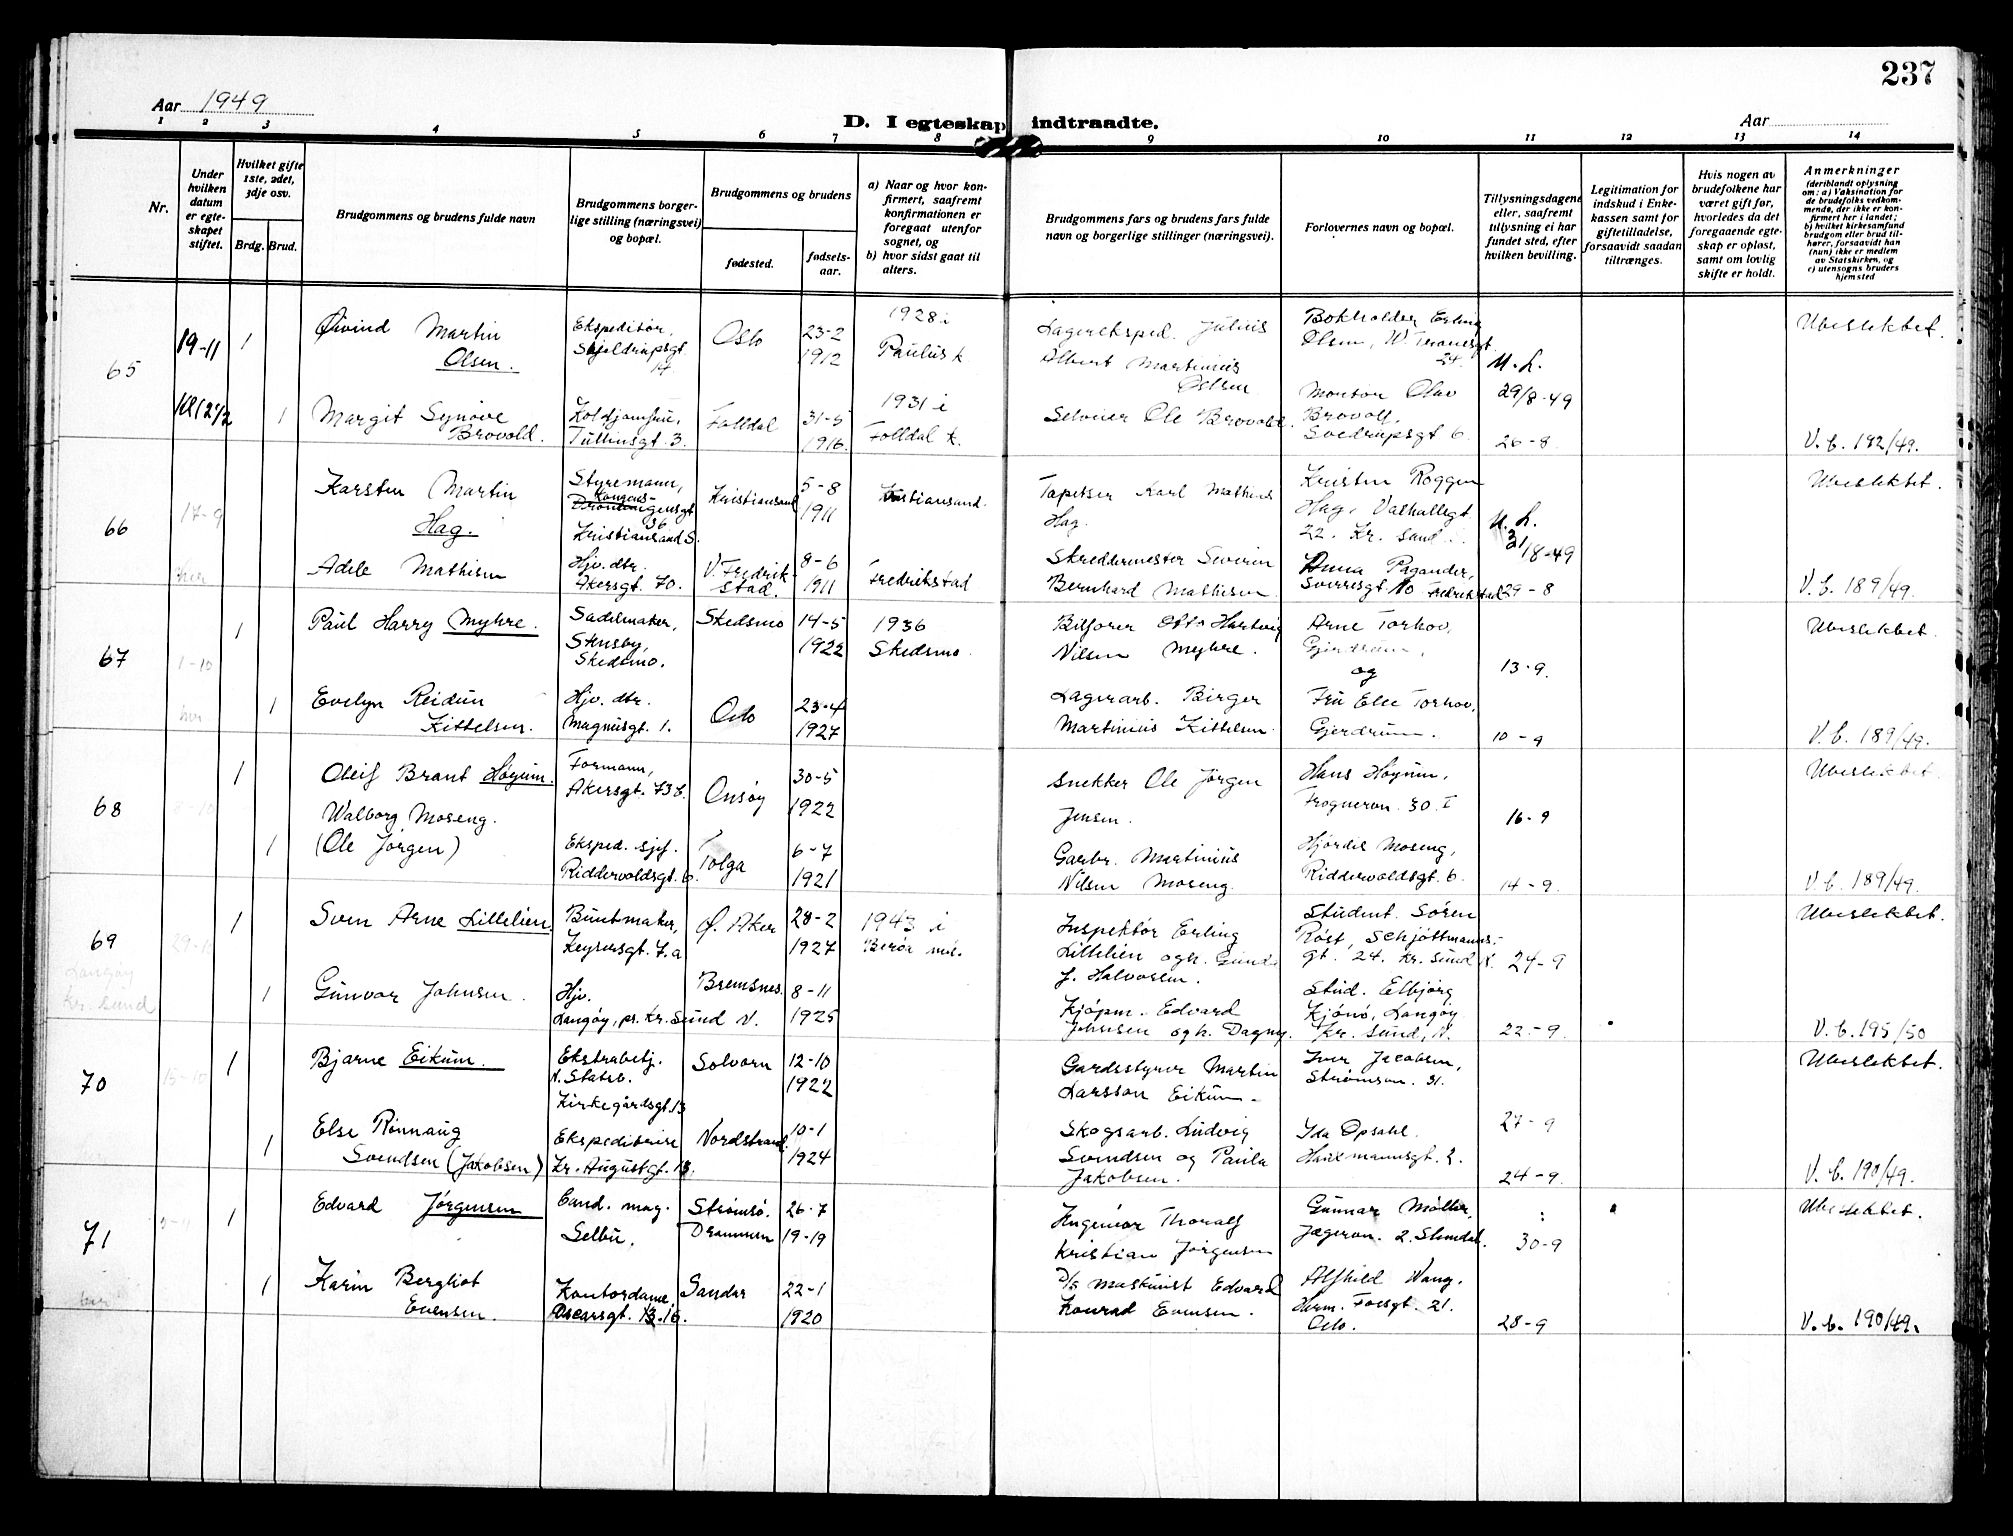 237
Aar 1949
D. I egteskap indtraadte.
Aar
1 2 3 4 5 6 7 8 9 10 11 12 13 14
Nr.
Under hvilken datum er egte-skapet stiftet.
Hvilket gifte 1ste, 2det, 3dje osv.
Brdg. Brud.
Brudgommens og brudens fulde navn
Brudgommens borger-lige stilling (næringsvei) og bopæl.
Brudgommens og brudens
fødested.
fødsels-aar.
a) Naar og hvor kon-firmert, saafremt konfirmationen er foregaat utenfor sognet, og
b) hvor sidst gaat til alters.
Brudgommens fars og brudens fars fulde navn og borgerlige stillinger (næringsvei).
Forlovernes navn og bopæl.
Tillysningsdagene eller, saafremt tillysning ei har fundet sted, efter hvilken bevilling.
Legitimation for indskud i Enke-kassen samt for giftetilladelse, forsaavidt saadan tiltrænges.
Hvis nogen av brudefolkene har været gift før, hvorledes da det foregaaende egte-skap er opløst, samt om lovlig skifte er holdt.
Anmerkninger
(deriblandt oplysning om: a) Vaksination for de brudefolks vedkom-mende, der ikke er kon-firmert her i landet; b) hvilket kirkesamfund brudgom eller brud til-hører, forsaavidt han (hun) ikke er medlem av Statskirken, og c) utensogns bruders hjemsted
65
19-11
1
Øivind Martin
Olsen.
Ekspeditør,
Oslo
23-2
1912
1928 i
Paulus k
Lagereksped. Julius
Albert Martinius
Olsen
Bokholder Erling
Olsen, W. Thranesgt.
24.
M. L.
29/8-49
Ubeslektet.
Kl 12 1/2
1
Margit Synøve
Brovold.
Tullinsgt. 3.
Folldal
31-5
1916
1931 i
Folldal k.
Ole Brovold.
Montør Olav
Brovold,
26-8.
V. b. 192/49.
66
17-9
Karsten Martin
Hag.
Styrmann,
Kongens-
36
Kristiansand S.
Kristiansand
5-8
1911
Kristiansand.
Tapetser Karl Mathius
Hag.
Kristen Roggen
Hag, Valhallagt
22. Kr. Sand
M. L.
31/8-49
Ubeslektet.
her
Adele Mathisen
Hjv. dtr.
Akersgt. 70.
V. Fredrik-
stad.
8-6
1911
Fredrikstad
Skreddermester Severin
Bernhard Mathisen.
Anna Pagander,
Sverresgt 10 Fredrikstad
29-8
V. b. 189/49.
67
1-10
1
Paul Harry Myhre.
Sadelmaker,
Stensby,
Skedsmo.
Skedsmo
14-5
1922
1936
Skedsmo.
Bilfører Otto Hartvig
Nilsen Myhre.
Arne Torhov,
Gjerdrum,
og
13-9.
Ubeslektet.
her
1
Evelyn Reidun
Kittelsen.
Hjv. dtr.
Magnusgt. 1.
Oslo
23-4
1927
Lagerarb. Birger
Martinius Kittelsen.
Fru Else Torhov,
Gjerdrum.
10-9
V. b. 189/49.
68
8-10
1
Oleif Brant Høyum.
Formann,
Akersgt. 73b.
Onsøy
30-5
1922
Snekker Ole Jørgen
Jensen.
Hans Høyum,
Frognervn. 30. I
16-9
Ubeslektet.
Walborg Moseng.
(Ole Jørgen)
1
Eksped. sjef.
Riddervoldsgt. 6.
Tolga
6-7
1921
Gårbr. Martinius
Nilsen Moseng.
Hjørdis Moseng,
Riddervoldsgt. 6.
14-9.
V. b. 189/49.
69
29-10
Langøy
Kr. sund
1
Sven Arne Lillelien.
Buntmaker,
Keysersgt. 7.a
Ø. Aker
28-2
1927
1943 i
Inspektør Erling
Lillelien ogh. Gunda
f. Halvorsen.
Student. Søren
Røst, Schjøttmanns-
gt. 24. Kr. Sund N.
24-9
Ubeslektet.
1
Gunvor Johnsen.
Hjv.
Langøy, pr. Kr. Sund N.
Bremsnes.
8-11
1925
Kjøpm. Edvard
Johnsen ogh. Dagny.
Stud. Elbjørg
Kjønø, Langøy
Kr. Sund, N.
22-9.
V. b. 195/50
70
15-10
1
Bjarne Eikum.
Ekstrabetj.
v. Statsb.
Kirkegårdsgt. 13
Solvorn
12-10
1922
Gardsstyrer Martin
Larsson Eikum.
Iver Jacobsen,
Strømsvn. 31.
27-9
Ubeslektet.
1
Else Rønnaug
Svendsen (Jakobsen)
Ekspeditrise
Kr. Augustsgt. 13.
Nordstrand.
10-1
1924
Skogsarb. Ludvig
Svendsen og Paula
Jakobsen.
Ida Opsahl.
24-9.
V. b. 190/49.
71
1
Edvard Jørgensen
Cand. mag.
Selbu.
Strømsø.
Drammen
26-7
19-19
Ingeniør Thoralf
Kristian Jørgensen
Gunnar Møller,
Jægervn. 2. Slemdal.
30-9
Ubeslektet.
her
1
Karin Bergliot
Evensen.
Kontordame,
Oscarsgt. 16.
Sandar
22-1
1920
Maskinist Edvard
Konrad Evensen.
Alfhild Wang.
Herm. Fossgt. 21.
Oslo.
28-9
V. b. 190/49.